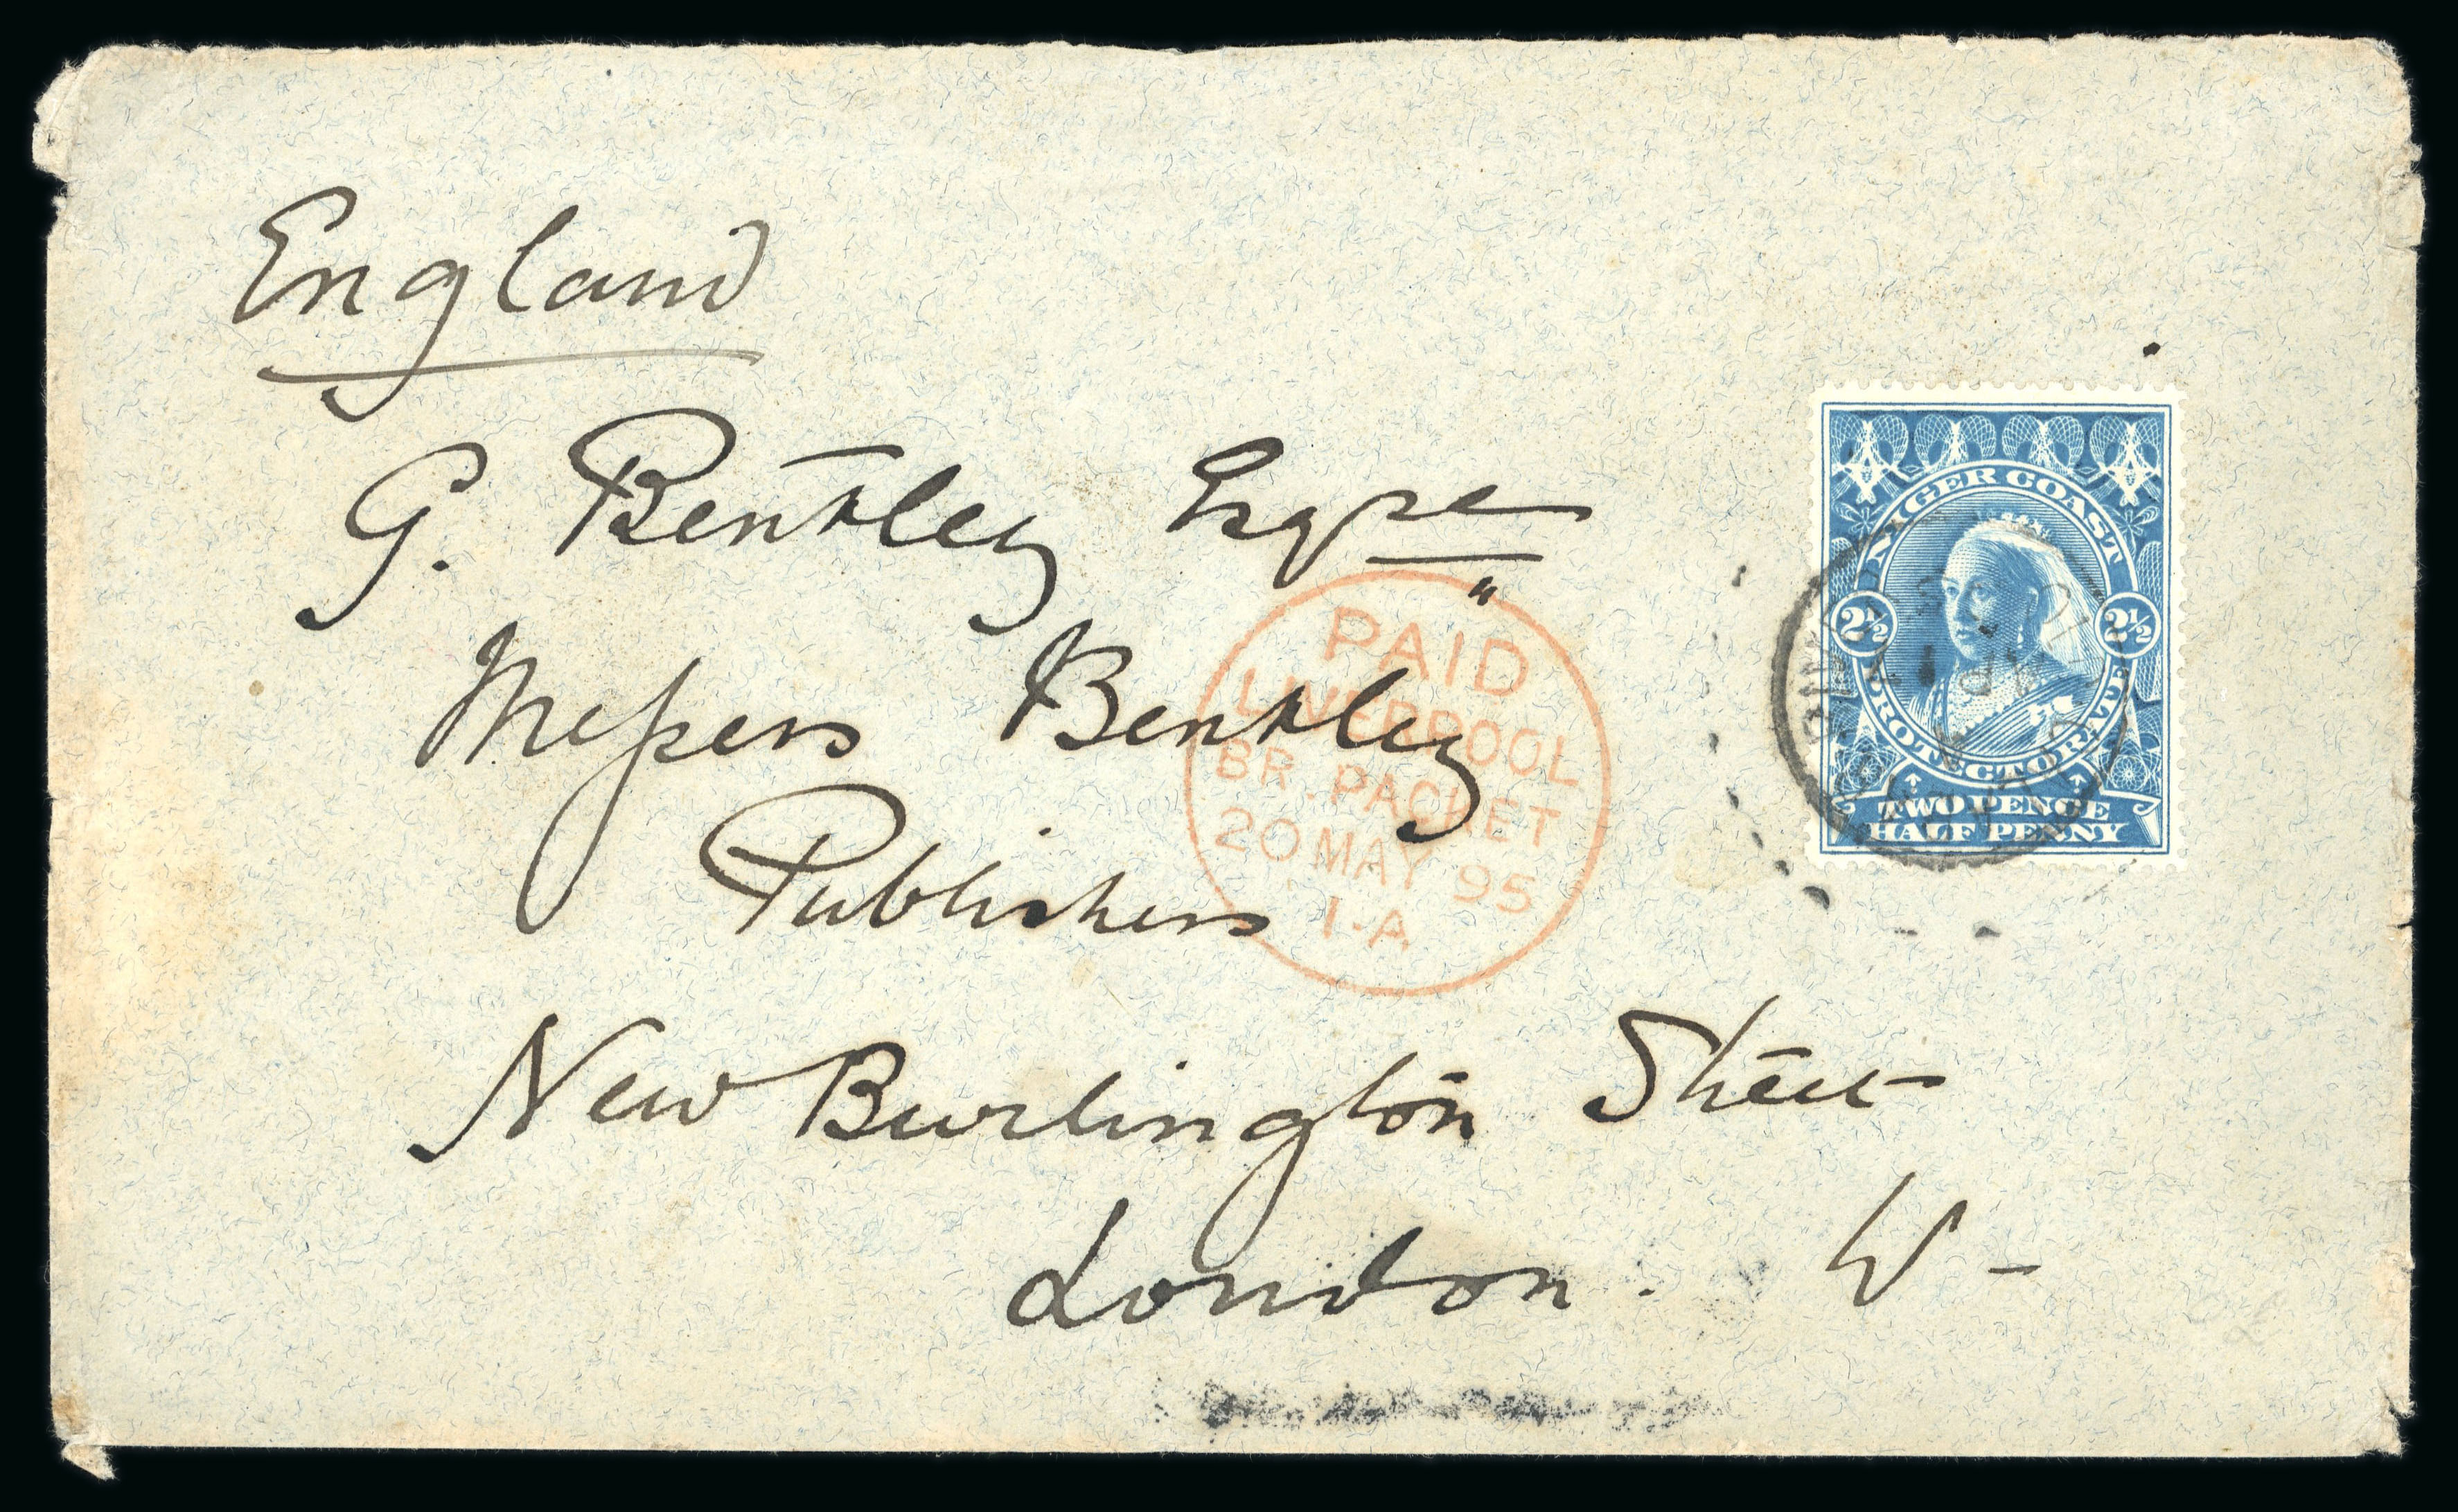 England
G. Bentley Esqre
Messrs Bentley
Publishers
New Burlington Street
London. W-
PAID
LIVERPOOL
BR. PACKET
20 MAY 95
1-A
NIGER COAST
PROTECTORATE
2½ 2½
TWO PENCE
HALF PENNY